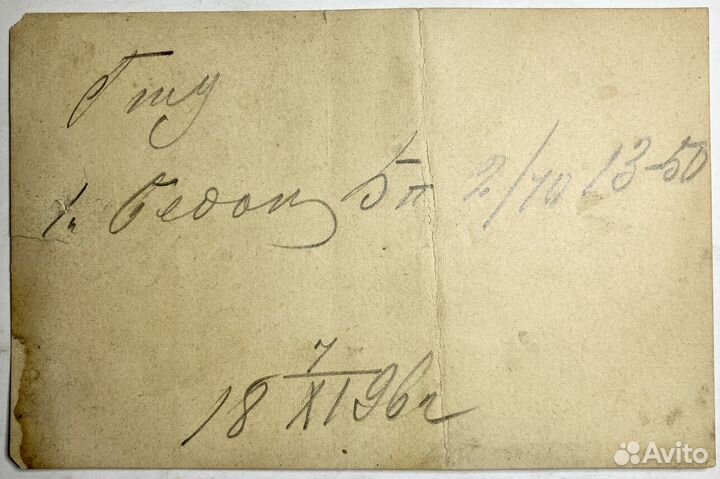 1. бедон 5п 2/70 13-50
18 7/XI 96 г
Avito